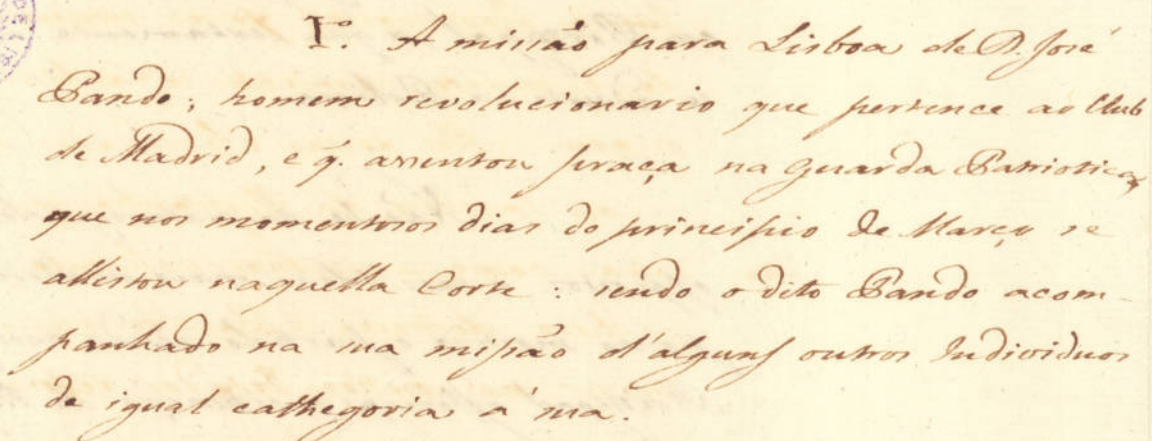 1º. A missão para Lisboa de D. José
Pando, homem revolucionario que pertence ao Club
de Madrid, e q̃. assentou praça na Guarda Patriotica,
que nos momentosos dias do principio de Março se
allistou naquella Corte: sendo o dito Pando acom-
panhado na sua missão d'alguns outros Individuos
de igual cathegoria á sua.